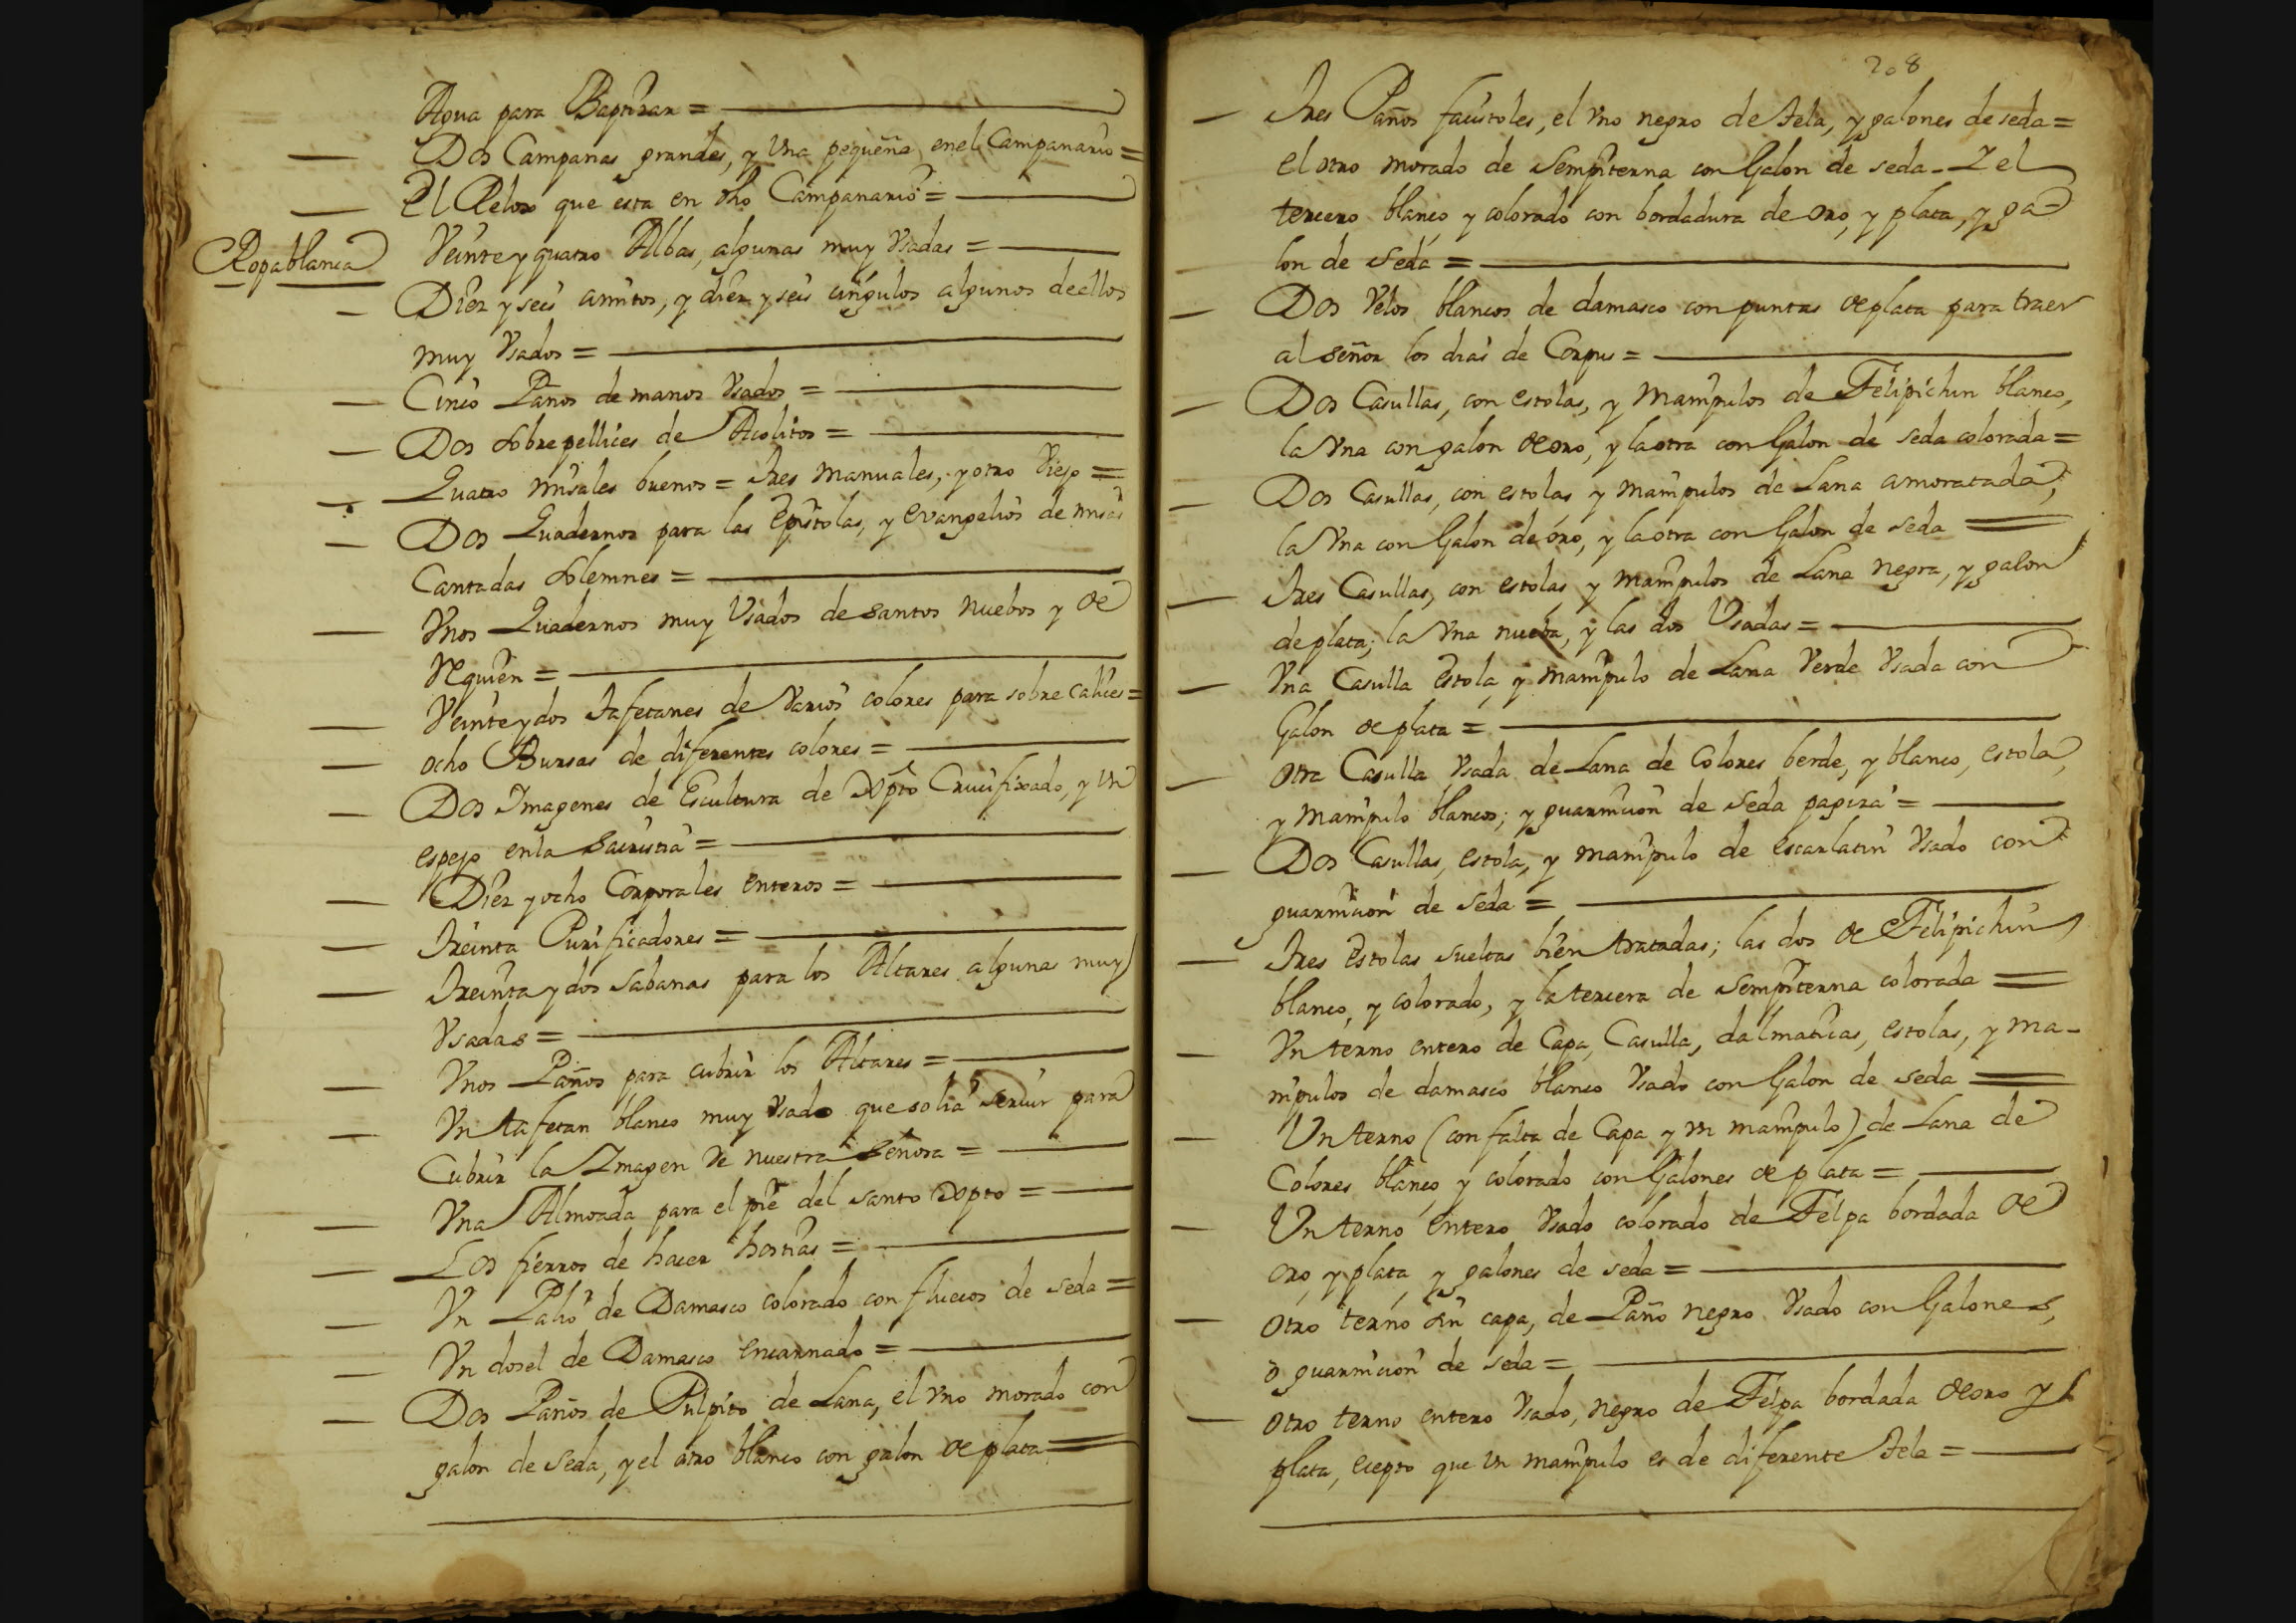 Agua para Baptizar =
Dos Campanas grandes, y Vna pequeña enel Campanario =
El Relox que esta en dho Campanario =
Ropa blanca
Veinte y quatro Albas, algunas muy Vsadas =
Diez y seis amitos, y diez y seis cingulos algunos dellos
muy Vsados =
Cinco Paños de manos Vsados =
Dos sobrepellices de Acolitos =
Quatro misales buenos = Tres Manuales, y otro Viejo =
Dos Quadernos para las Epistolas, y evangelios de misas
Cantadas solemnes =
Vnos Quadernos muy Vsados de santos nuebos y de
Requien =
Veinte y dos Tafetanes de Varios colores para sobre calices =
ocho Bursas de diferentes colores =
Dos Imagenes de Escultura de Xpto Crucifixado, y Vn
espejo enla Sacristia =
Diez y ocho Corporales enteros =
Treinta Purificadores =
Treinta y dos sabanas para los Altares algunas muy
Vsadas =
Vnos Paños para cubrir los Altares =
Vn tafetan blanco muy Vsado que solia servir para
Cubrir la Imagen de nuestra Señora =
Vna Almoada para el pie del santo Xpto =
Los fierros de hacer hostias =
Vn Palio de Damasco colorado con fluecos de seda =
Vn dosel de Damasco encarnado =
Dos Paños de Pulpito de Lana, el Vno morado con
galon de seda, y el otro blanco con galon de plata =
208
Tres Paños facistoles, el Vno negro de tela, y galones de seda =
el otro morado de Sempiterna con Galon de seda - Y el
tercero blanco y colorado con bordadura de oro, y plata, y ga
lon de seda =
Dos Velos blancos de damasco con puntas de plata para traer
al señor los dias de Corpus =
Dos Casullas, con estolas, y Manipulos de Felipichin blanco,
la Vna con galon de oro, y la otra con Galon de seda colorada =
Dos Casullas, con estolas y manipulos de Lana amoratada,
la Vna con Galon de oro, y la otra con Galon de seda =
Tres Casullas, con estolas y manipulos de Lana negra, y galon
de plata; la Vna nueba, y las dos Vsadas =
Vna Casulla estola y manipulo de Lana Verde Vsada con
Galon de plata =
otra Casulla Vsada de Lana de Colores berde, y blanco, estola,
y manipulo blancos; y guarnicion de seda pagiza =
Dos Casullas, estola, y manipulo de escarlatin Vsado con
guarnicion de seda =
Tres estolas sueltas bien tratadas; las dos de Felipichin
blanco, y colorado, y la tercera de sempiterna colorada =
Vn terno entero de Capa, Casulla, dalmaticas, estolas, y ma-
nipulos de damasco blanco Vsado con Galon de seda =
Vn terno (con falta de Capa y vn manipulo) de Lana de
Colores blanco y colorado con Galones de plata =
Vn terno entero Vsado colorado de Felpa bordada de
oro, y plata y galones de seda =
otro terno sin capa, de Paño negro Vsado con Galones,
o guarnicion de seda =
otro terno entero Vsado, negro de Felpa bordada de oro y
plata, ecepto que vn manipulo es de diferente tela =